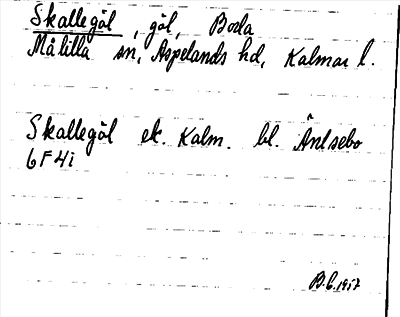 Skallegöl, göl, Boda
Målilla sn, Aspelands hd, Kalmar l.
Skallegöl ek. Kalm. bl. Äntsebo
6F4i
B.L. 1957